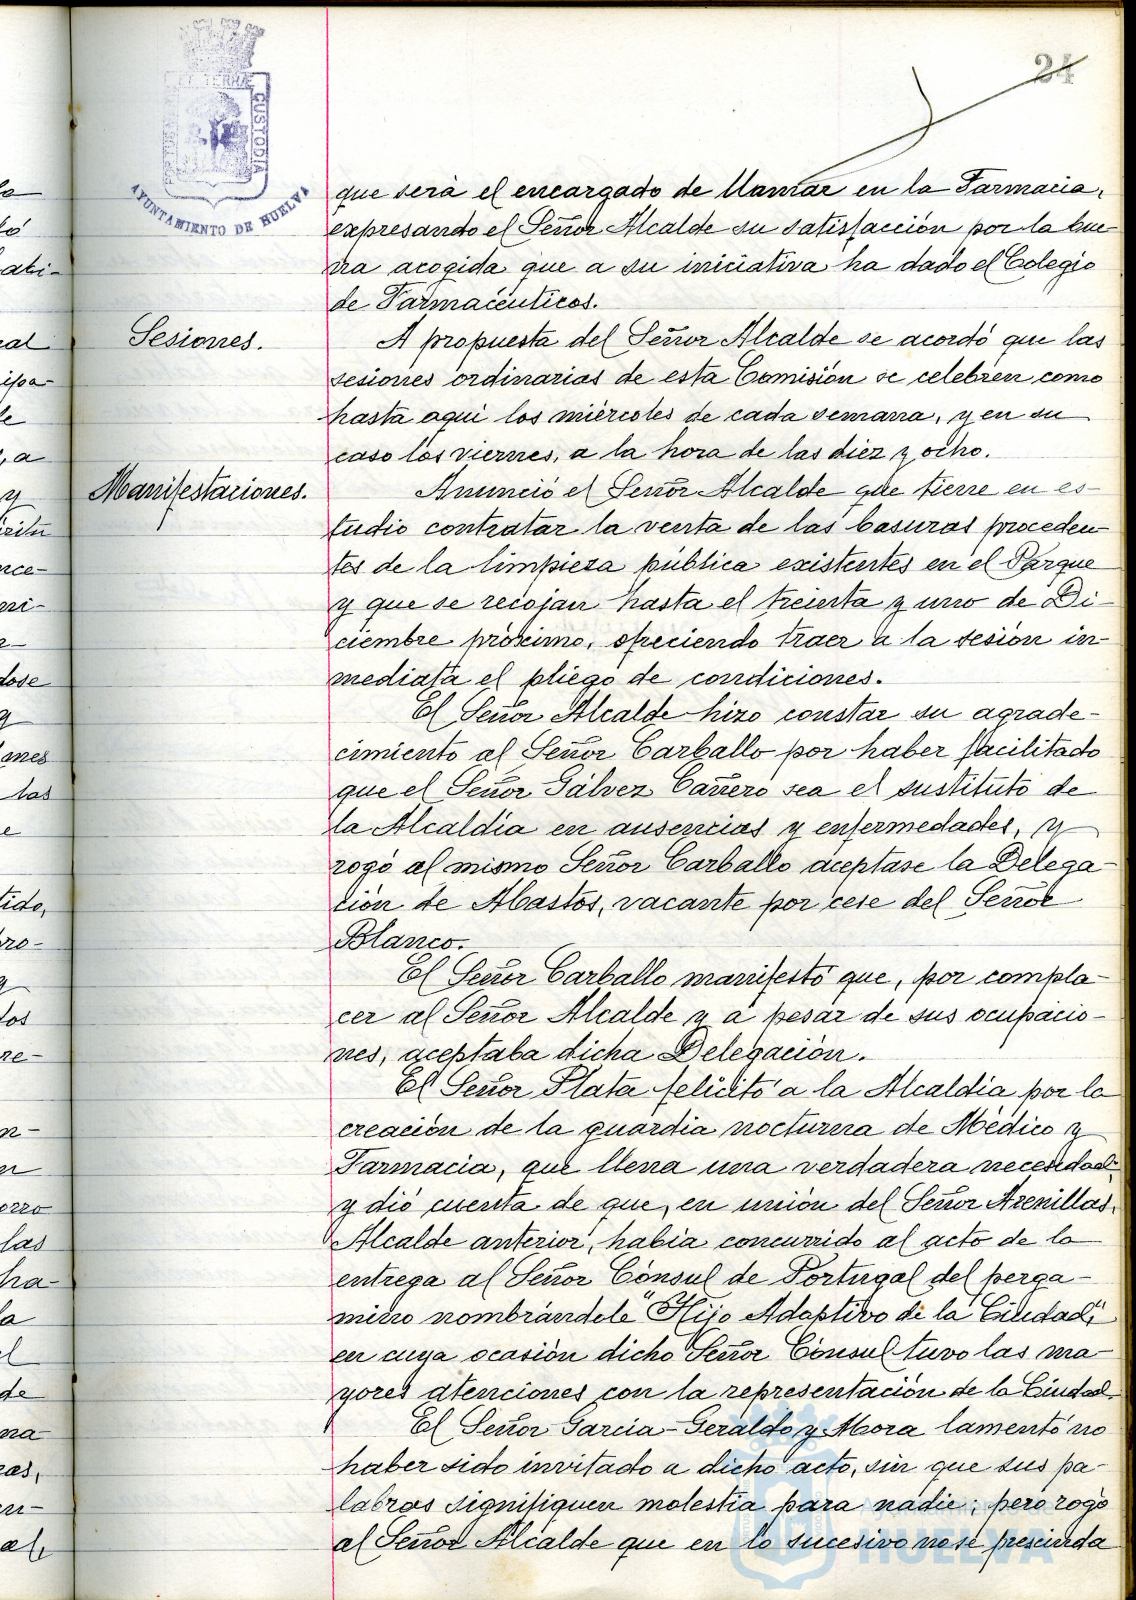 24
ET TERRÆ CUSTODIA
AYUNTAMIENTO DE HUELVA
que será el encargado de llamar en la Farmacia,
expresando el Señor Alcalde su satisfacción por la bue
na acogida que a su iniciativa ha dado el Colegio
de Farmacéuticos.
Sesiones.
A propuesta del Señor Alcalde se acordó que las
sesiones ordinarias de esta Comisión se celebren como
hasta aquí los miércoles de cada semana, y en su
caso los viernes, a la hora de las diez y ocho.
Manifestaciones.
Anunció el Señor Alcalde que tiene en es-
tudio contratar la venta de las basuras proceden-
tes de la limpieza pública existentes en el Parque
y que se recojan hasta el treinta y uno de Di-
ciembre próximo, ofreciendo traer a la sesión in-
mediata el pliego de condiciones.
El Señor Alcalde hizo constar su agrade-
cimiento al Señor Carballo por haber facilitado
que el Señor Gálvez Cañero sea el sustituto de
la Alcaldía en ausencias y enfermedades, y
rogó al mismo Señor Carballo aceptase la Delega-
ción de Abastos, vacante por cese del Señor
Blanco.
El Señor Carballo manifestó que, por compla-
cer al Señor Alcalde y a pesar de sus ocupacio-
nes, aceptaba dicha Delegación.
El Señor Plata felicitó a la Alcaldía por la
creación de la guardia nocturna de Médico y
Farmacia, que llena una verdadera necesidad,
y dió cuenta de que, en unión del Señor Arenillas,
Alcalde anterior, había concurrido al acto de la
entrega al Señor Cónsul de Portugal del perga-
mino nombrándole "Hijo Adoptivo de la Ciudad",
en cuya ocasión dicho Señor Cónsul tuvo las ma-
yores atenciones con la representación de la Ciudad.
El Señor García-Geraldo y Mora lamentó no
haber sido invitado a dicho acto, sin que sus pa-
labras signifiquen molestia para nadie; pero rogó
al Señor Alcalde que en lo sucesivo no se prescinda
Ayuntamiento de
HUELVA